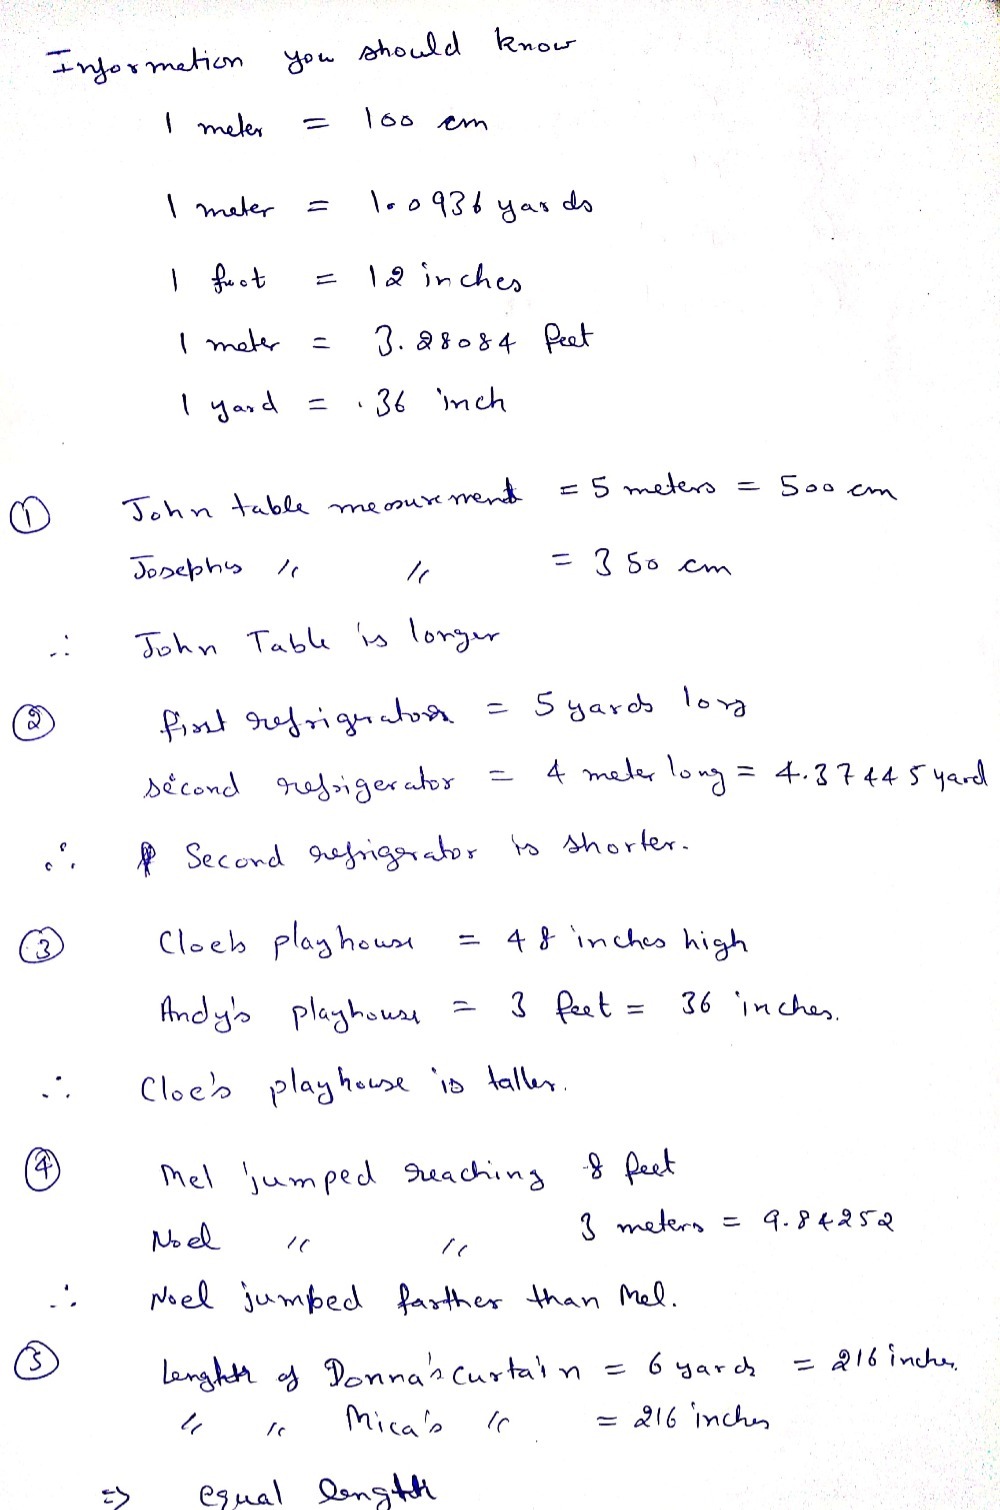 Information you should know
1 meter = 100 cm
1 meter = 1.0936 yards
1 foot = 12 inches
1 meter = 3.28084 feet
1 yard = .36 inch
① John table measurement = 5 meters = 500 cm
Josephs " " = 350 cm
∴ John Table is longer
② first refrigerator = 5 yards long
second refrigerator = 4 meter long = 4.37445 yard
∴ Second refrigerator is shorter.
③ Cloe's playhouse = 48 inches high
Andy's playhouse = 3 feet = 36 inches.
∴ Cloe's playhouse is taller.
④ Mel jumped reaching 8 feet
Noel " " 3 meters = 9.84252
∴ Noel jumped farther than Mel.
⑤ Lenghth of Donna's curtain = 6 yards = 216 inches.
" " Mica's " = 216 inches
⇒ equal length